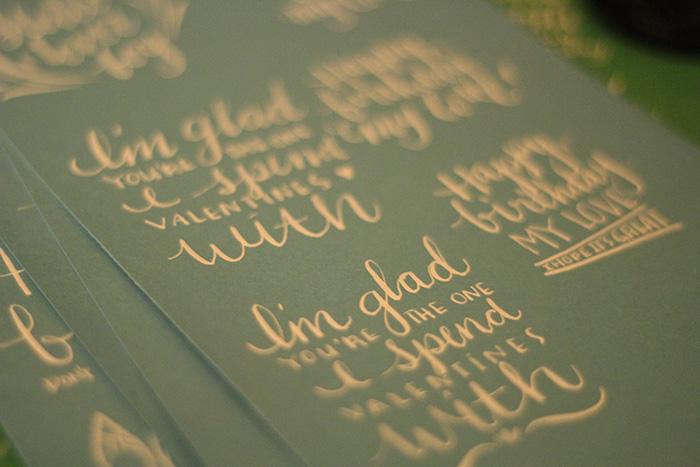 I'm glad
YOU'RE THE ONE
I spend
VALENTINES
with
Happy
birthday
my love!
Happy
birthday
MY LOVE
I HOPE IT'S GREAT
I'm glad
YOU'RE THE ONE
I spend
VALENTINES
with